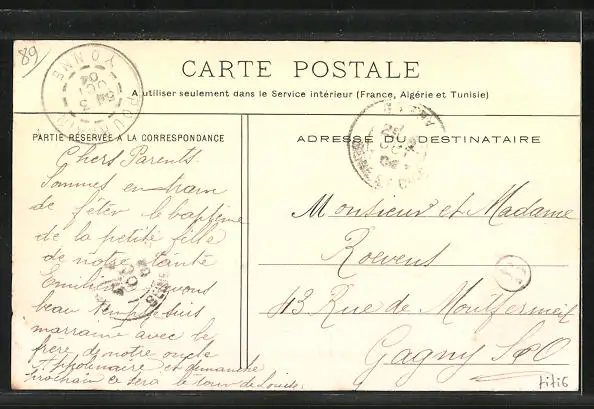 89
CARTE POSTALE
A utiliser seulement dans le Service intérieur (France, Algérie et Tunisie)
PARTIE RÉSERVÉE A LA CORRESPONDANCE
ADRESSE DU DESTINATAIRE
YONNE
Chers Parents.
Sommes en train
de fêter le baptême
de la petite fille
de notre tante
Emilie
beau temps je suis
marraine avec le
frère de notre oncle
Appolinaire et dimanche
prochain ce sera le tour de Louise
Monsieur et Madame
Roevens
43 Rue de Montfermeil
Gagny S&O